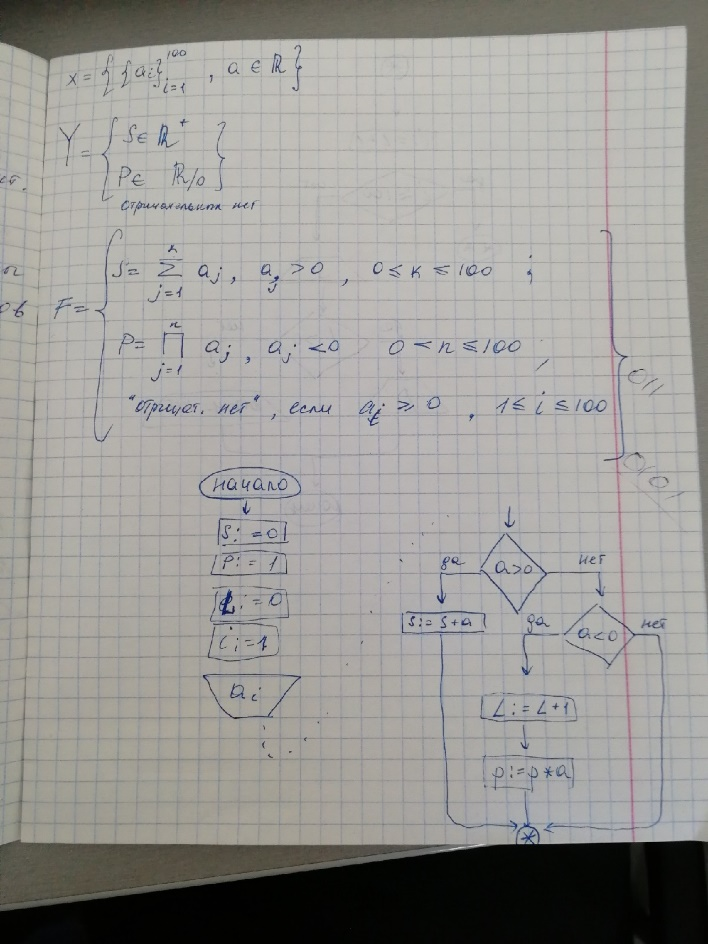 x = { {ai}¹⁰⁰ᵢ₌₁ , a ∈ ℝ }
Y = { S ∈ ℝ⁺
P ∈ ℝ/0 }
отрицательных нет
ов
F = { S = ∑ⱼ₌₁ᵏ aj , aj > 0 , 0 ≤ k ≤ 100 ;
P = ∏ⱼ₌₁ⁿ aj , aj < 0 0 < n ≤ 100 ;
"отрицат. нет" , если ai ≥ 0 , 1 ≤ i ≤ 100 }
начало
S: = 0
P: = 1
L: = 0
i: = 1
ai
a>0
да
нет
S: = S+a
a<0
да
нет
L: = L+1
p: = p*a
*